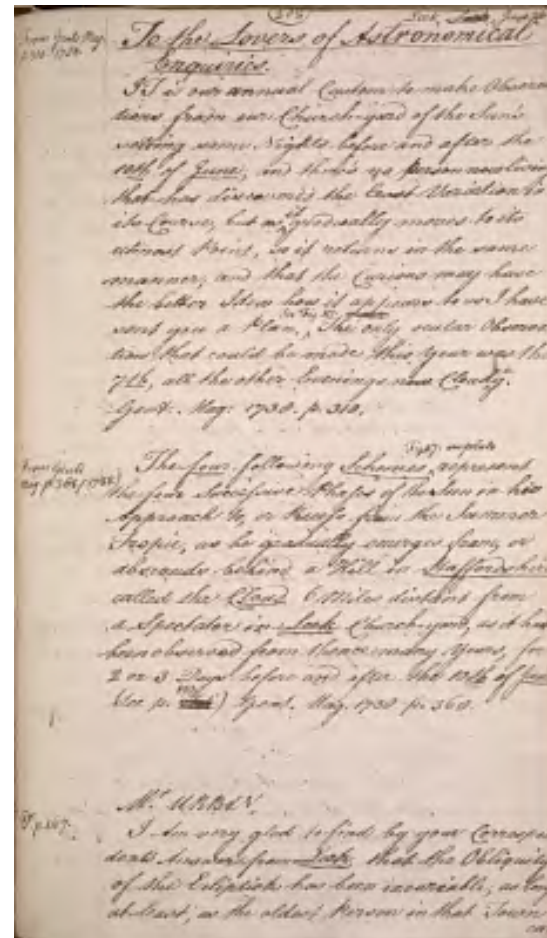 To the Lovers of Astronomical
Enquiries.
From Gents Mag.
1738.
IT is our annual Custom to make Observa
tions from our Church-yard of the Sun's
setting some Nights before and after the
10th of June, and there's no person now living
that has discover'd the least Variation in
its Course, but as it gradually moves to its
utmost Point, so it returns in the same
manner, and that the Curious may have
the better Idea how it appears to us I have
sent you a Plan. The only ocular Observa
tion that could be made this Year was the
7th, all the other Evenings Cloudy.
Gent. Mag. 1738. p.
The four following Schemes represent
From Gents
Mag.
the four Successive Phases of the Sun in his
Approach to, or Recess from the Summer
Tropic, as he gradually emerges from, or
descends behind a Hill in Staffordshire
called the Cloud 6 Miles distant from
a Spectator in Leek Church-yard, as it has
been observed from thence many Years, for
2 or 3 Days before and after the 10th of June
Gent. Mag. 1738 p. 368.
Mr. URBAN.
I Am very glad to find by your Correspon
dents Answer from Leek, that the Obliquity
of the Ecliptick has been invariable, as long
at least, as the oldest Person in that Town